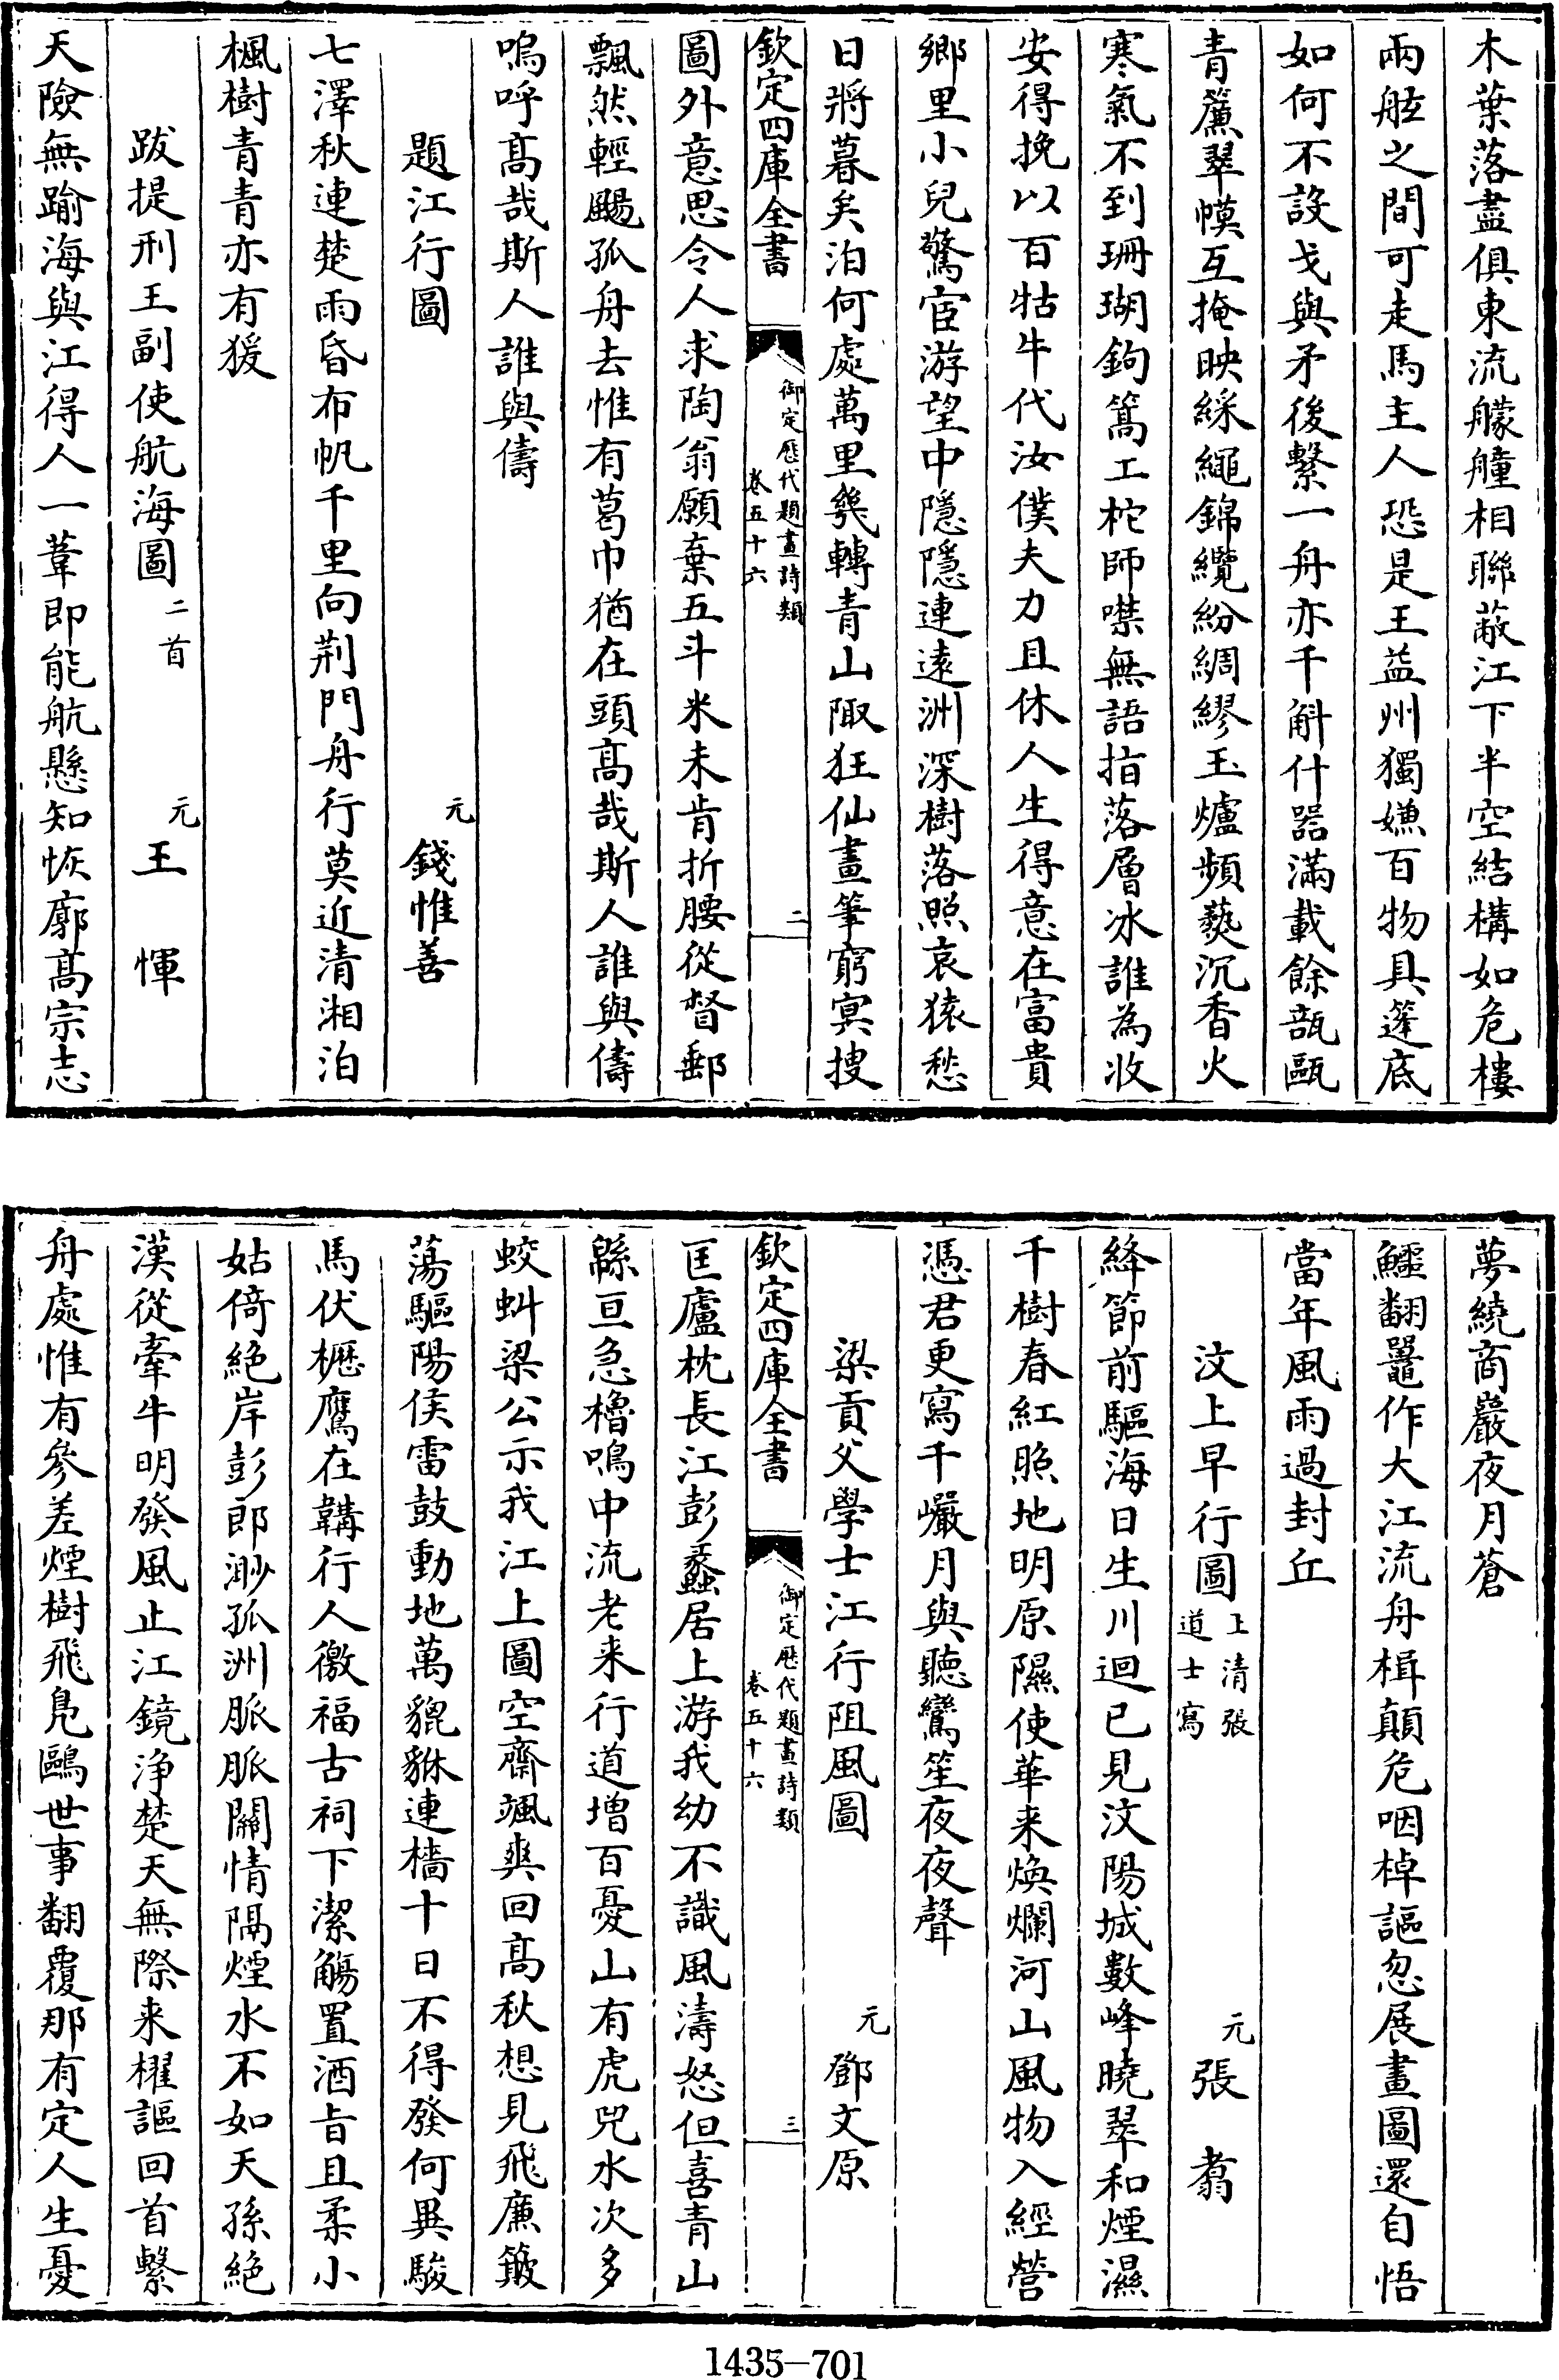 木葉落盡俱東流艨艟相聯蔽江下半空結構如危樓
兩舷之間可走馬主人恐是王益州獨嫌百物具篷底
如何不設戈與矛後繫一舟亦千斛什器滿載餘瓿甌
青簾翠幙互掩映綵繩錦纜紛綢繆玉爐頻爇沉香火
寒氣不到珊瑚鉤篙工柁師噤無語指落層冰誰為收
安得挽以百牯牛代汝僕夫力且休人生得意在富貴
鄉里小兒驚宦游望中隱隱連遠洲深樹落照哀猿愁
日將暮矣泊何處萬里幾轉青山陬狂仙畫筆窮冥搜
欽定四庫全書
御定歷代題畫詩類
卷五十六
二
圖外意思令人求陶翁願棄五斗米未肯折腰從督郵
飄然輕颺孤舟去惟有葛巾猶在頭高哉斯人誰與儔
嗚呼高哉斯人誰與儔
題江行圖 元 錢惟善
七澤秋連楚雨昏布帆千里向荆門舟行莫近清湘泊
楓樹青青亦有猨
跋提刑王副使航海圖 二首 元 王 惲
天險無踰海與江得人一葦即能航懸知恢廓高宗志
夢繞商巖夜月蒼
鱷翻鼉作大江流舟楫顛危咽棹謳忽展畫圖還自悟
當年風雨過封丘
汶上早行圖 上清張道士寫 元 張 翥
絳節前驅海日生川迴已見汶陽城數峰曉翠和煙濕
千樹春紅照地明原隰使華来煥爛河山風物入經營
憑君更寫千巖月與聽鸞笙夜夜聲
梁貢父學士江行阻風圖 元 鄧文原
欽定四庫全書
御定歷代題畫詩類
卷五十六
三
匡廬枕長江彭蠡居上游我幼不識風濤怒但喜青山
緜亘急櫓鳴中流老来行道增百憂山有虎兕水次多
蛟虯梁公示我江上圖空齋颯爽回高秋想見飛廉簸
蕩驅陽侯雷鼓動地萬貔貅連檣十日不得發何異駿
馬伏櫪鷹在韝行人徼福古祠下潔觴置酒旨且柔小
姑倚絶岸彭郎渺孤洲脈脈關情隔煙水不如天孫絶
漢從牽牛明發風止江鏡浄楚天無際来櫂謳回首繫
舟處惟有參差煙樹飛鳧鷗世事翻覆那有定人生憂
1435—701